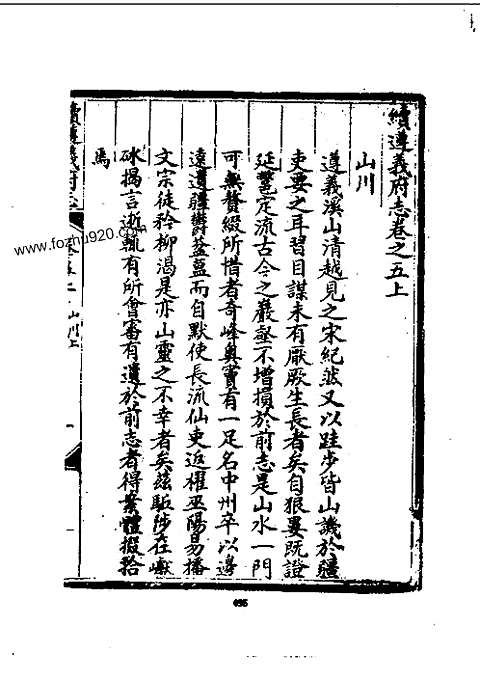 續遵義府志卷之五上
山川
遵義溪山清越見之宋紀茲又以跬步皆山譏於疆
吏要之耳習目謀未有厭厥生長者矣自狼㟽既證
延鬱定流古今之巖壑不增損於前志是山水一門
可無贅綴所惜者奇峰奧竇有一足名中州卒以邊
遠遺疆鬱葢藍而自默使長流仙吏返櫂巫陽易播
文宗徒矜柳渴是亦山靈之不幸者矣茲驅陟在巘
砅揭言逝輒有所會審有遺於前志者得纂體掇拾
焉
續遵義府志
卷五上
山川上
www.fozhu920.com
495